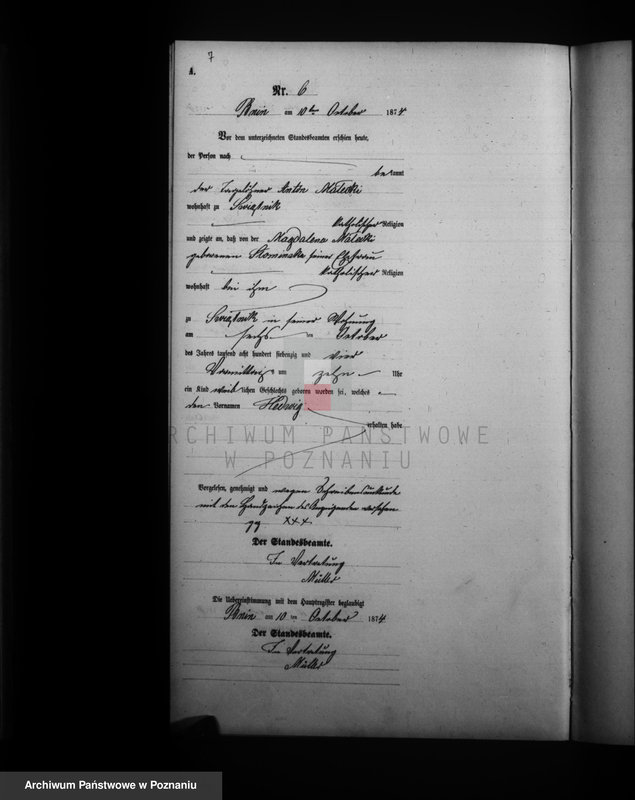 7
A.
Nr. 6
Bnin am 10ten October 1874
Vor dem unterzeichneten Standesbeamten erschien heute,
der Person nach
bekannt
der Tagelöhner Anton Malecki
wohnhaft zu
katholischer Religion
und zeigte an, daß von der Magdalena Malecki
geborenen Slominska seiner Ehefrau
katholischer Religion
wohnhaft bei ihm
zu in seiner Wohnung
am sechs ten October
des Jahres tausend acht hundert siebenzig und vier
Vormittags um zehn Uhr
ein Kind weiblichen Geschlechts geboren worden sei, welches
den Vornamen Hedwig
erhalten habe
ARCHIWUM PAŃSTWOWE
W POZNANIU
Vorgelesen, genehmigt und wegen Schreibensunkunde
mit den Handzeichen des Anzeigenden versehen
xxx
Der Standesbeamte.
In Vertretung
Müller
Die Uebereinstimmung mit dem Hauptregister beglaubigt
Bnin am 10 ten October 1874
Der Standesbeamte.
In Vertretung
Müller
Archiwum Państwowe w Poznaniu